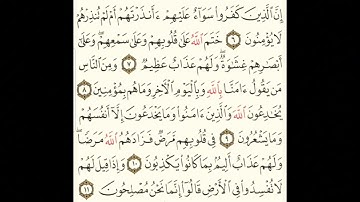 إِنَّ الَّذِينَ كَفَرُوا سَوَاءٌ عَلَيْهِمْ ءَأَنذَرْتَهُمْ أَمْ لَمْ تُنذِرْهُمْ
لَا يُؤْمِنُونَ ٦ خَتَمَ اللَّهُ عَلَىٰ قُلُوبِهِمْ وَعَلَىٰ سَمْعِهِمْ ۖ وَعَلَىٰ
أَبْصَارِهِمْ غِشَاوَةٌ ۖ وَلَهُمْ عَذَابٌ عَظِيمٌ ٧ وَمِنَ النَّاسِ
مَن يَقُولُ ءَامَنَّا بِاللَّهِ وَبِالْيَوْمِ الْآخِرِ وَمَا هُم بِمُؤْمِنِينَ ٨
يُخَادِعُونَ اللَّهَ وَالَّذِينَ ءَامَنُوا وَمَا يَخْدَعُونَ إِلَّا أَنفُسَهُمْ
وَمَا يَشْعُرُونَ ٩ فِي قُلُوبِهِم مَّرَضٌ فَزَادَهُمُ اللَّهُ مَرَضًا ۖ
وَلَهُمْ عَذَابٌ أَلِيمٌ بِمَا كَانُوا يَكْذِبُونَ ١٠ وَإِذَا قِيلَ لَهُمْ
لَا تُفْسِدُوا فِي الْأَرْضِ قَالُوا إِنَّمَا نَحْنُ مُصْلِحُونَ ١١